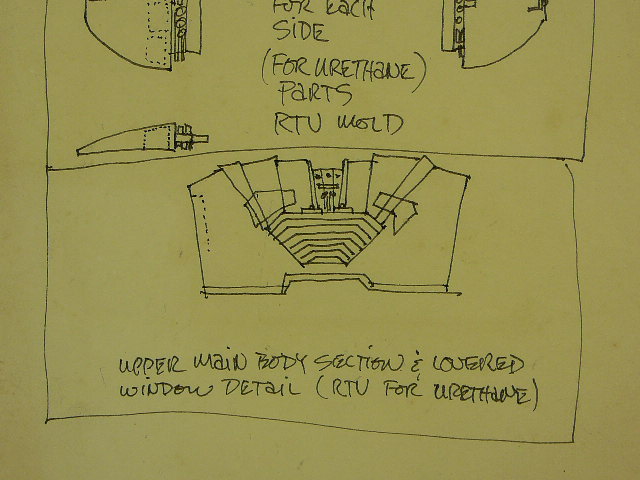 FOR EACH
SIDE
(FOR URETHANE)
PARTS
RTV MOLD
UPPER MAIN BODY SECTION & LOUVERED
WINDOW DETAIL (RTV FOR URETHANE)